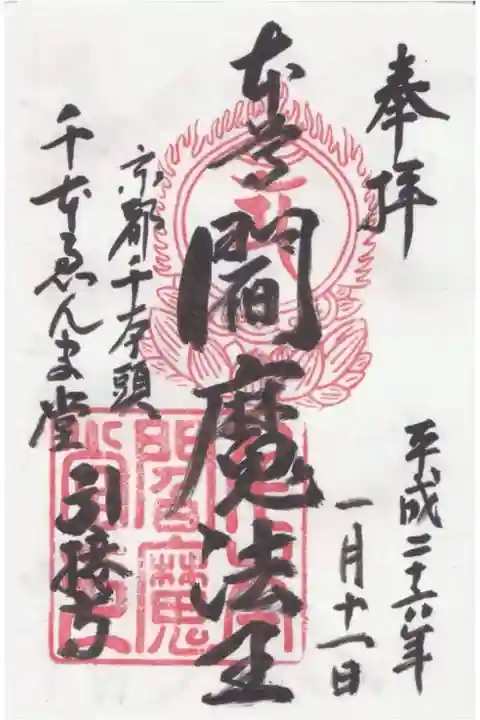 奉拝
平成二十六年
一月十一日
本尊閻魔法王
京都千本頭
千本ゑんま堂
引接寺